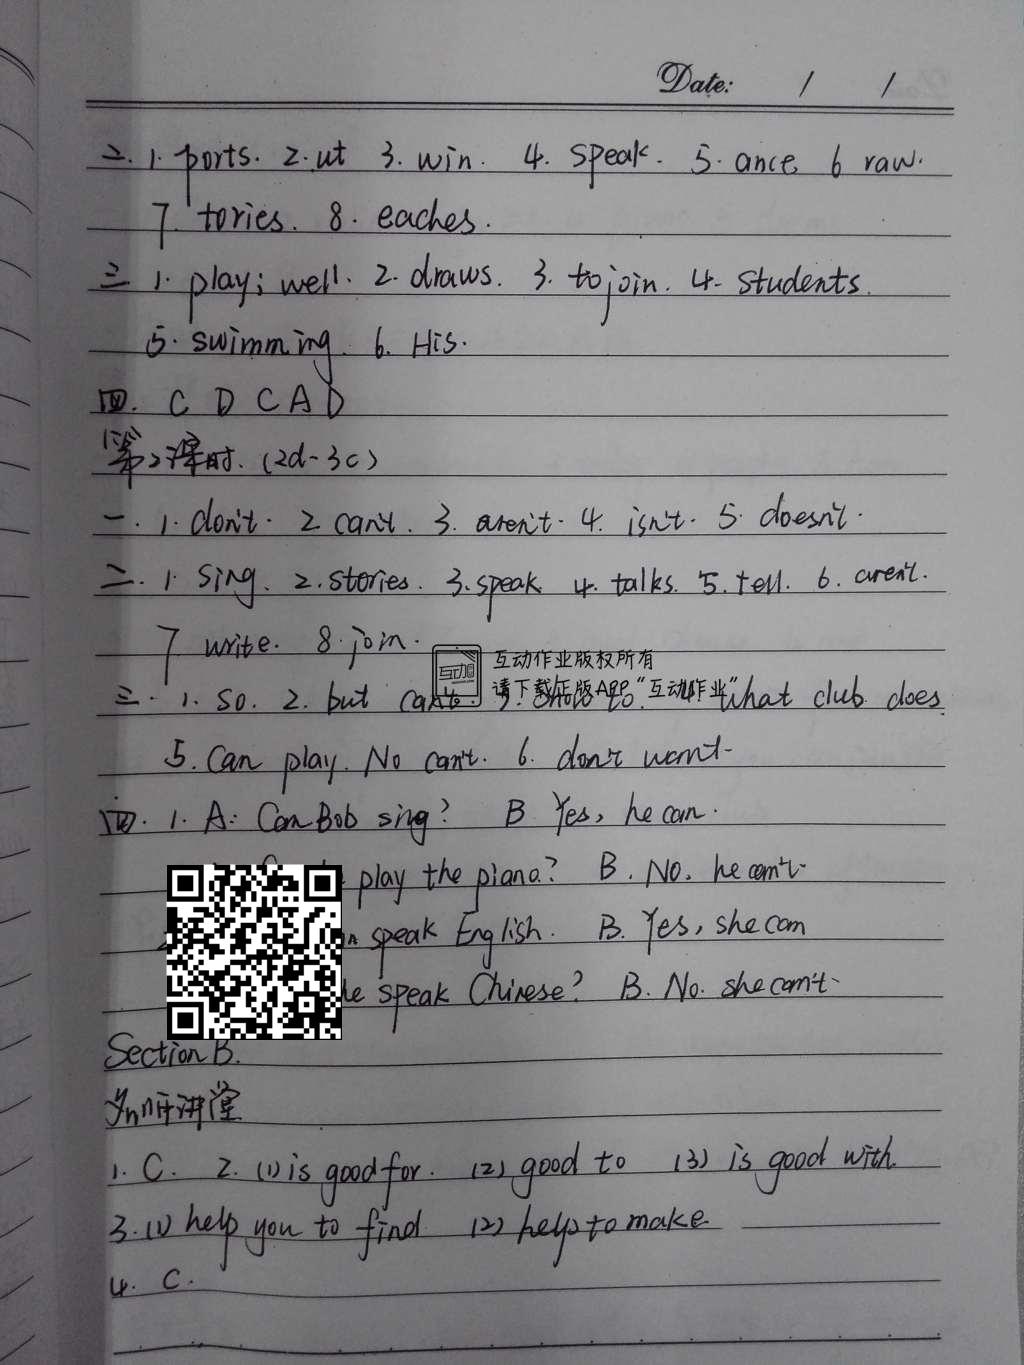 Date: / /
二. 1. ports. 2. ut 3. win. 4. speak. 5. ance. 6 raw.
7 tories. 8. eaches.
三 1. play; well. 2. draws. 3. to join. 4. students.
5. swimming. 6. His.
四. C D C A D
第2课时. (2d-3c)
一. 1. don't. 2 can't. 3. aren't. 4. isn't. 5. doesn't.
二. 1. sing. 2. stories. 3. speak 4. talks. 5. tell. 6. aren't.
7 write. 8. join.
互动作业版权所有
请下载正版APP“互动作业”
三. 1. so. 2. but can't. 3. 4. what club does
5. Can play. No can't. 6. don't want.
四. 1. A: Can Bob sing? B Yes, he can.
play the piano? B. No, he can't.
speak English. B. Yes, she can
he speak Chinese? B. No. she can't.
Section B.
讲堂
1. C. 2. (1) is good for. (2) good to (3) is good with.
3. (1) help you to find (2) help to make
4. C.